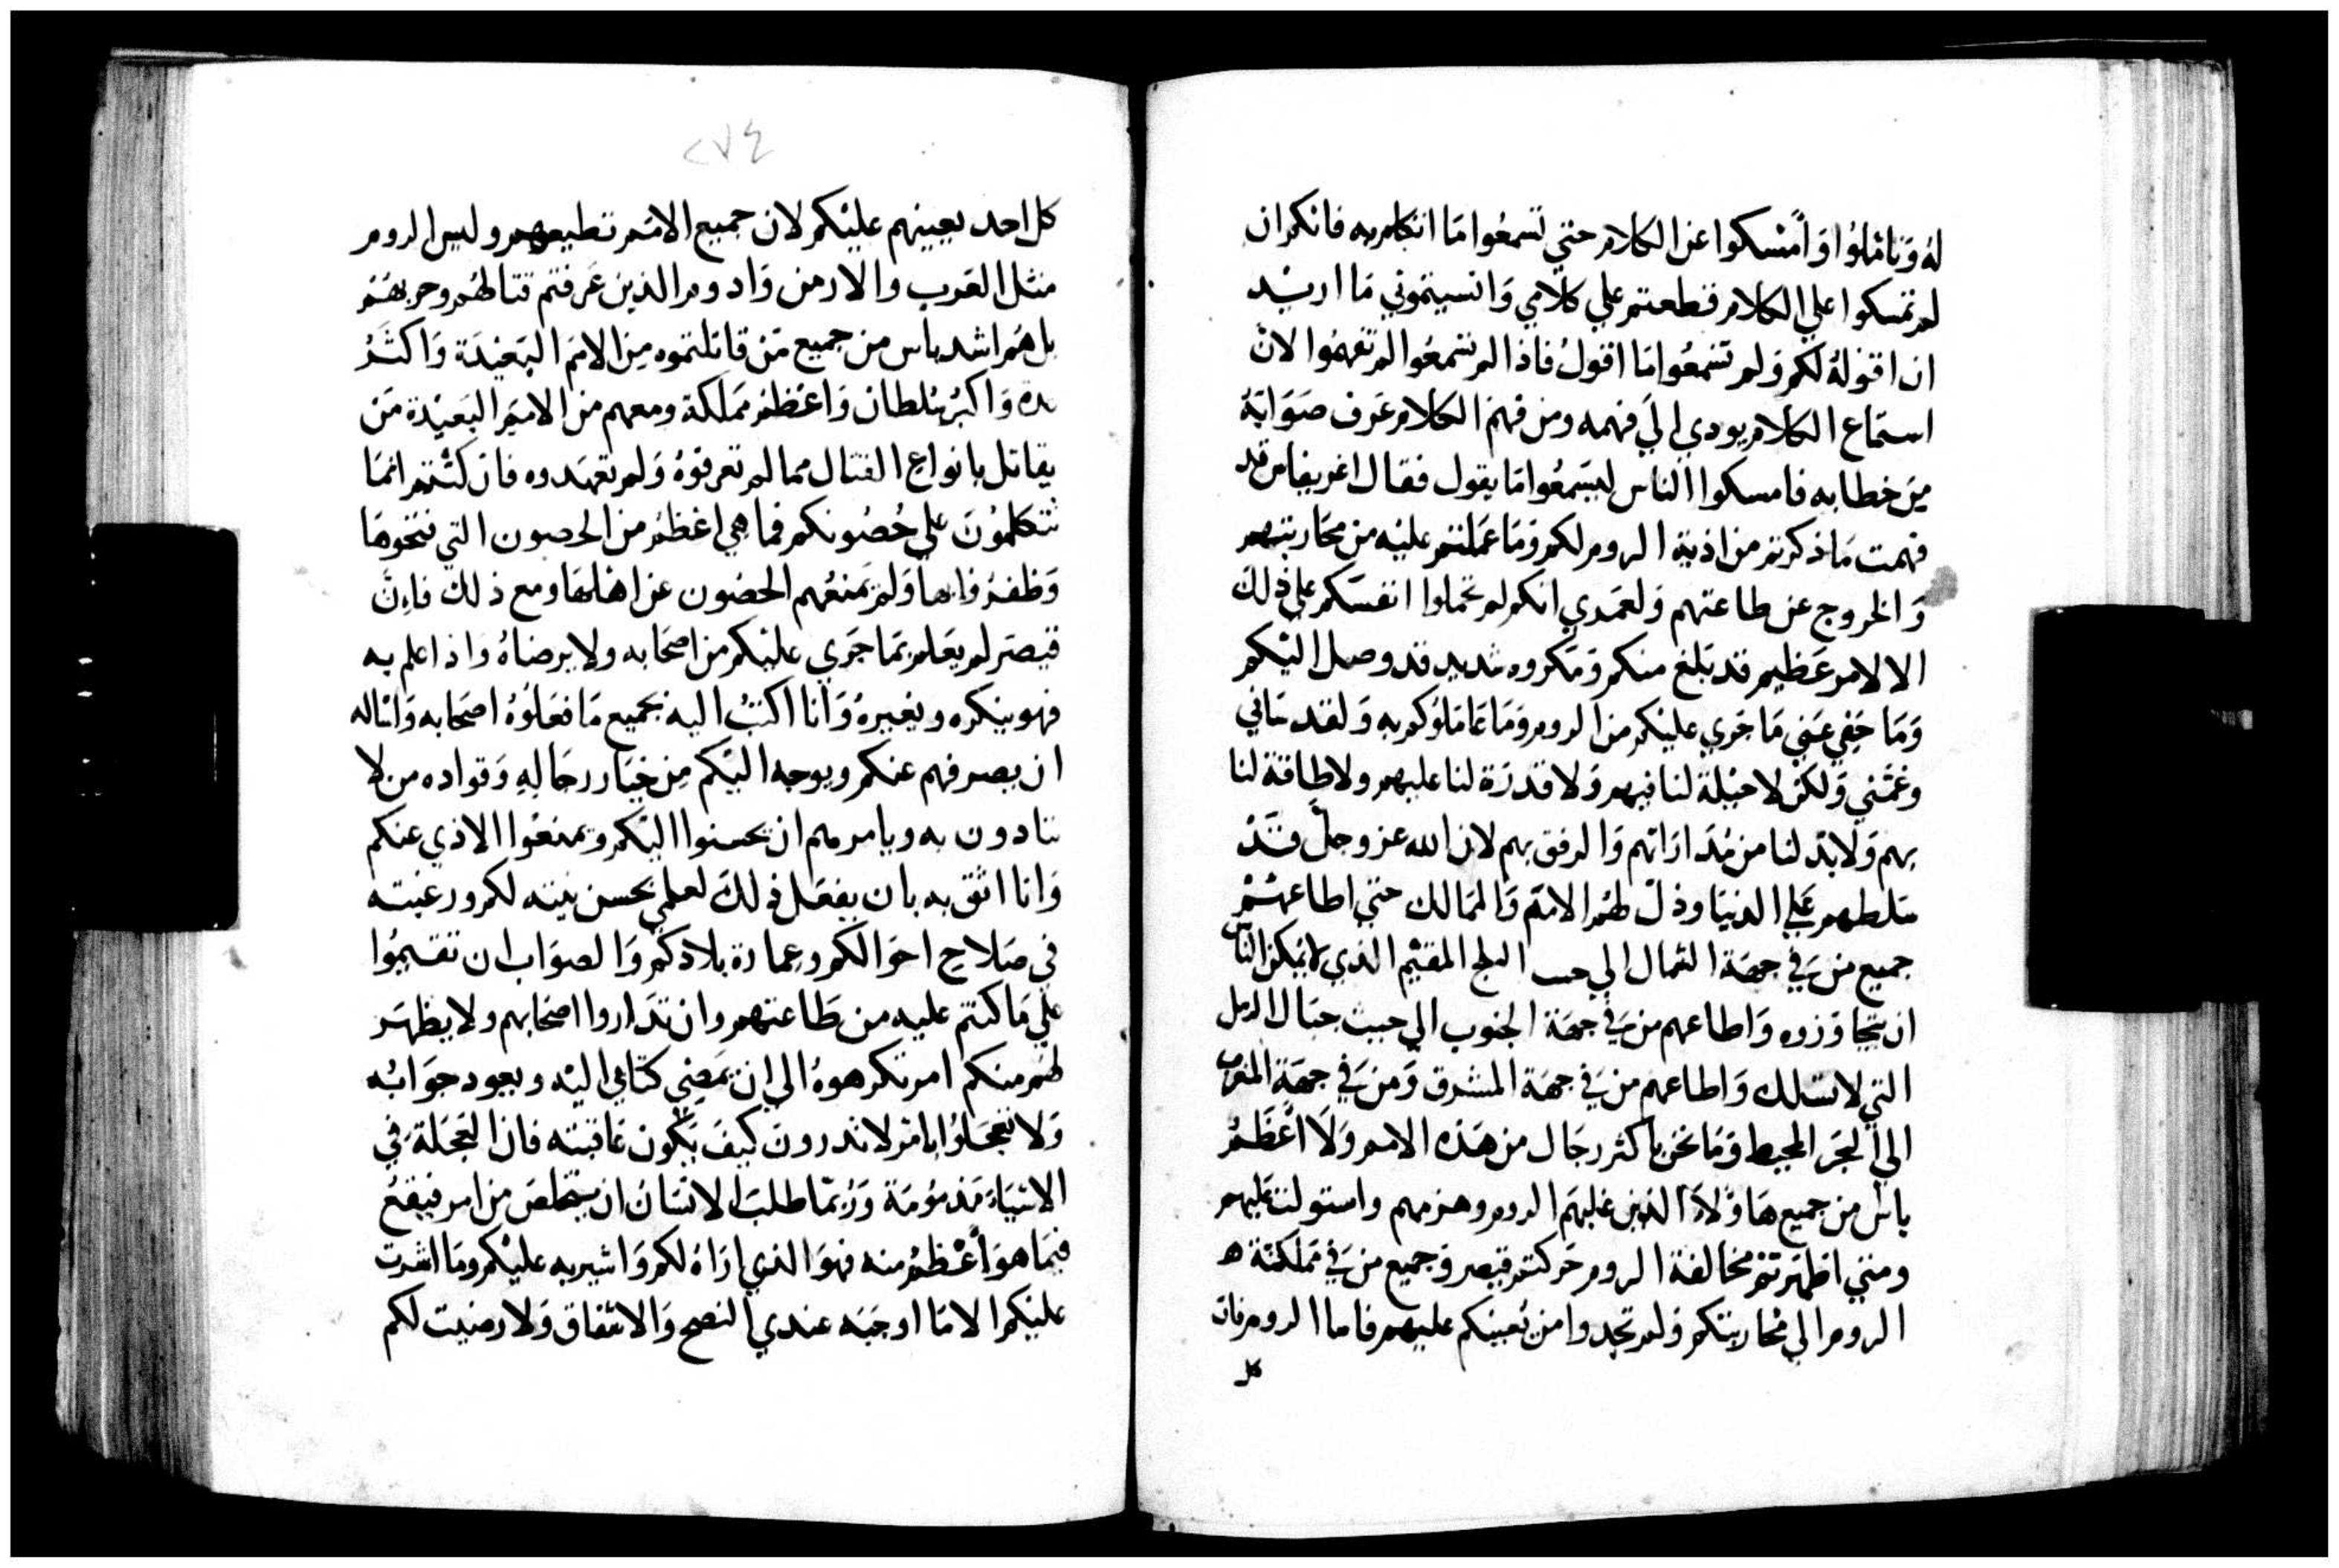 له وتاملوا وأمسكوا عن الكلام حتي تسمعوا ما اتكلم به فانكم ان
لم تمسكوا علي الكلام قطعتم علي كلامي وانسيتموني ما اريد
ان اقوله لكم ولم تسمعوا ما اقول فاذا لم تسمعوا لم تفهموا لان
استماع الكلام يودي الي فهمه ومن فهم الكلام عرف صوابه
من خطابه فامسكوا الناس ليسمعوا ما يقول فقال اغريفاس قد
فهمت ما ذكرتم من اذية الروم لكم وما عملتم عليه من محاربتهم
والخروج عن طاعتهم ولعمدي انكم لم تحملوا انفسكم علي ذلك
الا لامر عظيم قد بلغ منكم ومكروه شديد قد وصل اليكم
وما خفي عني ما جري عليكم من الروم وما عاملوكم به ولقد ساني
وغمني ولكن لا حيلة لنا فيهم ولا قدرة لنا عليهم ولا طاقة لنا
بهم ولا بد لنا من مداراتهم والرفق بهم لان الله عز وجل قد
سلطهم علي الدنيا وذل لهم الامم والممالك حتي اطاعهم
جميع من في جهة الشمال الي حيث الثلج المقيم الذي لا يمكن الناس
ان يتجاوزوه واطاعهم من في جهة الجنوب الي حيث جبال الرمل
التي لا تسلك واطاعهم من في جهة المشرق ومن في جهة المغرب
الي البحر المحيط وما نحن باكثر رجال من هذه الامم ولا اعظم
باس من جميع هاولاء الذين غلبهم الروم وهزمهم واستولت عليهم
ومتي اظهرتم مخالفة الروم حركتم قيصر وجميع من في مملكة ه
الروم الي محاربتكم ولم تجدوا من يعينكم عليهم فاما الروم فان
كل
٢٧٤
كل احد يعينهم عليكم لان جميع الامم تطيعهم وليس الروم
مثل العرب والارمن وادوم الذين عرفتم قتالهم وحربهم
بل هم اشد باس من جميع من قاتلتموه من الامم البعيدة واكثر
واكبر سلطان واعظم مملكة ومعهم من الامم البعيدة من
يقاتل بانواع القتال مما لم تعرفوه ولم تعهدوه فان كنتم انما
تتكلمون علي حصونكم فما هي اعظم من الحصون التي فتحوها
وظفروا بها ولم يمنعهم الحصون عن اهلها ومع ذلك فان
قيصر لم يعلم بما جري عليكم من اصحابه ولا يرضاه واذا علم به
فهو ينكره ويغيره وانا اكتب اليه بجميع ما فعلوه اصحابه واساله
ان يصرفهم عنكم ويوجه اليكم من خيار رجاله وقواده من لا
تتادون به ويامرهم ان يحسنوا اليكم ويمنعوا الاذي عنكم
وانا اثق به بان يفعل ذلك لعلمي بحسن نيته لكم ورغبته
في صلاح احوالكم وعمارة بلادكم والصواب ان تقيموا
علي ما كنتم عليه من طاعتهم وان تداروا اصحابهم ولا يظهر
لهم منكم امر تكرهوه الي ان يمضي كتابي اليه ويعود جوابه
ولا تعجلوا بامر لا تدرون كيف يكون عاقبته فان العجلة في
الاشياء مذمومة وربما طلب الانسان ان يتخلص من امر فيقع
فيما هو أعظم منه فهو الذي اراه لكم واشير به عليكم وما اشرت
عليكم الا ما اوجبه عندي النصح والاشفاق ولا رضيت لكم